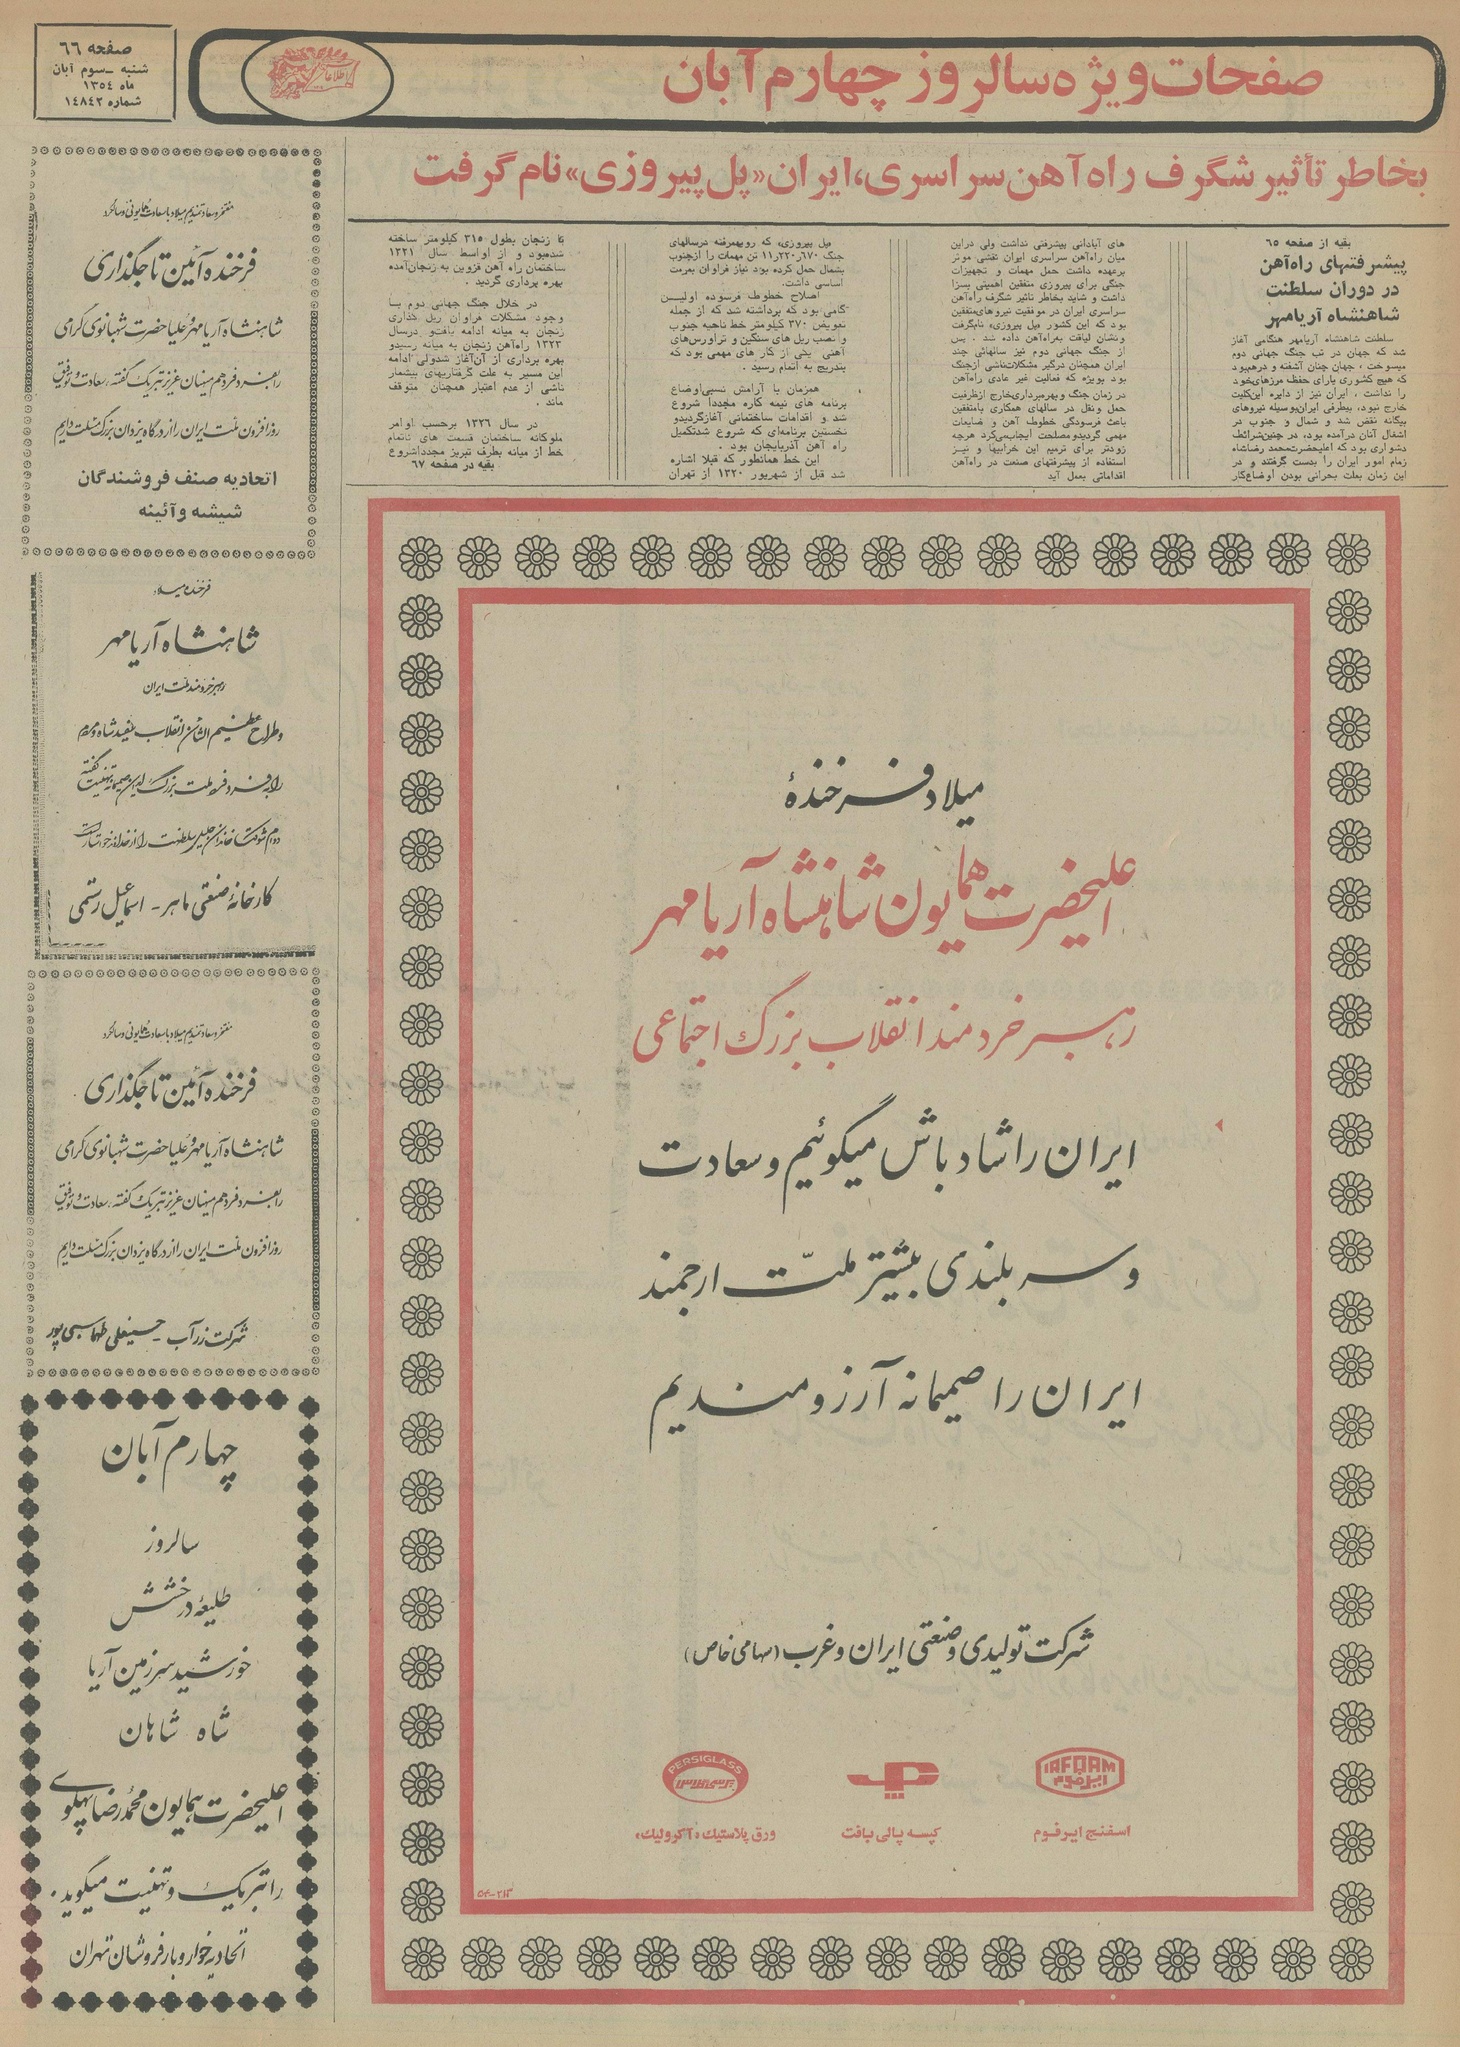 صفحه ٦٦
شنبه ــ سوم آبان
ماه ١٣٥٤
شماره ١٤٨٤٢
صفحات ویژه سالروز چهارم آبان
بخاطر تأثیر شگرف راه‌آهن سراسری، ایران «پل پیروزی» نام گرفت
بقیه از صفحه ٦٥
پیشرفتهای راه‌آهن
در دوران سلطنت
شاهنشاه آریامهر
سلطنت شاهنشاه آریامهر هنگامی آغاز
شد که جهان در تب جنگ جهانی دوم
میسوخت ، جهان چنان آشفته و درهم‌بود
که هیچ کشوری یارای حفظ مرزهای‌خود
را نداشت ، ایران نیز از دایره این‌کلیت
خارج نبود، بیطرفی ایران‌بوسیله نیروهای
بیگانه نقض شد و شمال و جنوب در
اشغال آنان درآمده بود، در چنین‌شرائط
دشواری بود که اعلیحضرت‌محمد رضاشاه
زمام امور ایران را بدست گرفتند و در
این زمان بعلت بحرانی بودن اوضاع‌کار
های آبادانی پیشرفتی نداشت ولی دراین
میان راه‌آهن سراسری ایران نقشی موثر
برعهده داشت حمل مهمات و تجهیزات
جنگی برای پیروزی متفقین اهمیتی بسزا
داشت و شاید بخاطر تاثیر شگرف راه‌آهن
سراسری ایران در موفقیت نیروهای‌متفقین
بود که این کشور «پل پیروزی» نام‌گرفت
ونشان لیاقت به‌راه‌آهن داده شد . پس
از جنگ جهانی دوم نیز سالهائی چند
ایران همچنان درگیر مشکلات‌ناشی ازجنگ
بود بویژه که فعالیت غیر عادی راه‌آهن
در زمان جنگ وبهره‌برداری‌خارج ازظرفیت
حمل ونقل در سالهای همکاری بامتفقین
باعث فرسودگی خطوط آهن و ضایعات
مهمی گردیدومصلحت ایجاب‌میکرد هرچه
زودتر برای ترمیم این خرابیها و نیز
استفاده از پیشرفتهای صنعت در راه‌آهن
اقداماتی بعمل آید
«پل پیروزی» که رویهمرفته درسالهای
جنگ ١١٫٢٢٠٫٦٧٠ تن مهمات را ازجنوب
بشمال حمل کرده بود نیاز فراوان بمرمت
اساسی داشت.
اصلاح خطوط فرسوده اولیــن
گامی بود که برداشته شد که از جمله
تعویض ٣٧٠ کیلومتر خط ناحیه جنوب
و نصب ریل های سنگین و تراورس‌های
آهنی یکی از کار های مهمی بود که
بتدریج به اتمام رسید .
همزمان با آرامش نسبی‌اوضاع
برنامه های نیمه کاره مجدداً شروع
شد و اقدامات ساختمانی آغازگردیدو
نخستین برنامه‌ای که شروع شدتکمیل
راه آهن آذربایجان بود .
این خط همانطور که قبلا اشاره
شد قبل از شهریور ١٣٢٠ از تهران
تا زنجان بطول ٣١٥ کیلومتر ساخته
شده‌بود و از اواسط سال ١٣٢١
ساختمان راه آهن قزوین به زنجان‌آمده
بهره برداری گردید .
در خلال جنگ جهانی دوم بــا
وجود مشکلات فراوان ریل گذاری
زنجان به میانه ادامه یافت‌و درسال
١٣٢٣ راه‌آهن زنجان به میانه رسیدو
بهره برداری از آن‌آغاز شدولی ادامه
این مسیر به علت گرفتاریهای بیشمار
ناشی از عدم اعتبار همچنان متوقف
ماند .
در سال ١٣٢٦ برحسب اوامر
ملوکانه ساختمان قسمت های ناتمام
خط از میانه بطرف تبریز مجدداشروع
بقیه در صفحه ٦٧
مفتخر و سعادتمندیم میلاد با سعادت همایونی و سالگرد
فرخنده آئین تاجگذاری
شاهنشاه آریامهر و علیاحضرت شهبانوی گرامی
را بفرد فرد هم میهنان عزیز تبریک گفته ، سعادت و توفیق
روزافزون ملت ایران را از درگاه یزدان بزرگ مسئلت داریم
اتحادیه صنف فروشندگان
شیشه وآئینه
فرخنده میلاد
شاهنشاه آریامهر
رهبر خردمند ملت ایران
و طراح عظیم الشأن انقلاب سفید شاه و مردم
کارخانهٔ صنعتی ماهر ـ اسماعیل رستمی
مفتخر و سعادتمندیم میلاد با سعادت همایونی و سالگرد
فرخنده آئین تاجگذاری
شاهنشاه آریامهر و علیاحضرت شهبانوی گرامی
را بفرد فرد هم میهنان عزیز تبریک گفته ، سعادت و توفیق
روزافزون ملت ایران را از درگاه یزدان بزرگ مسئلت داریم
شرکت زرآب ـ حسینعلی طهماسبی پور
چهارم آبان
سالروز
طلیعهٔ درخشش
خورشید سرزمین آریا
شاه شاهان
اعلیحضرت همایون محمدرضا پهلوی
را تبریک و تهنیت میگوید .
اتحادیه خوار و بار فروشان تهران
میلاد فرخندهٔ
اعلیحضرت همایون شاهنشاه آریامهر
رهبر خردمند انقلاب بزرگ اجتماعی
ایران را شادباش میگوئیم و سعادت
و سربلندی بیشتر ملّت ارجمند
ایران را صمیمانه آرزومندیم
شرکت تولیدی و صنعتی ایران و غرب (سهامی خاص)
IRFOAM
ایرفوم
PERSIGLASS
پرسی گلاس
اسفنج ایرفوم
کیسه پالی بافت
ورق پلاستیک «آکرولیک»
٥٤-٢١٣